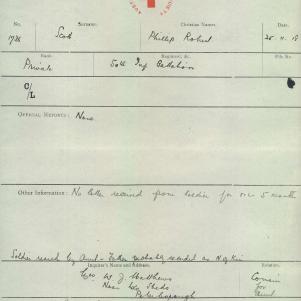 No. Surname. Christian Names. Date.
1786 Scott Phillip Robert 25.11.18
Rank. Regiment, &c. File No.
Private 50th Inf Battalion
O/L
OFFICIAL REPORTS: None
Other Information: No letter received from soldier for over 5 months
Soldier reared by Aunt - Father probably recorded as N of Kin
Inquirer's Name and Address. Relation.
W J Matthews Cousin
Near Sheds for
Peterborough Aunt